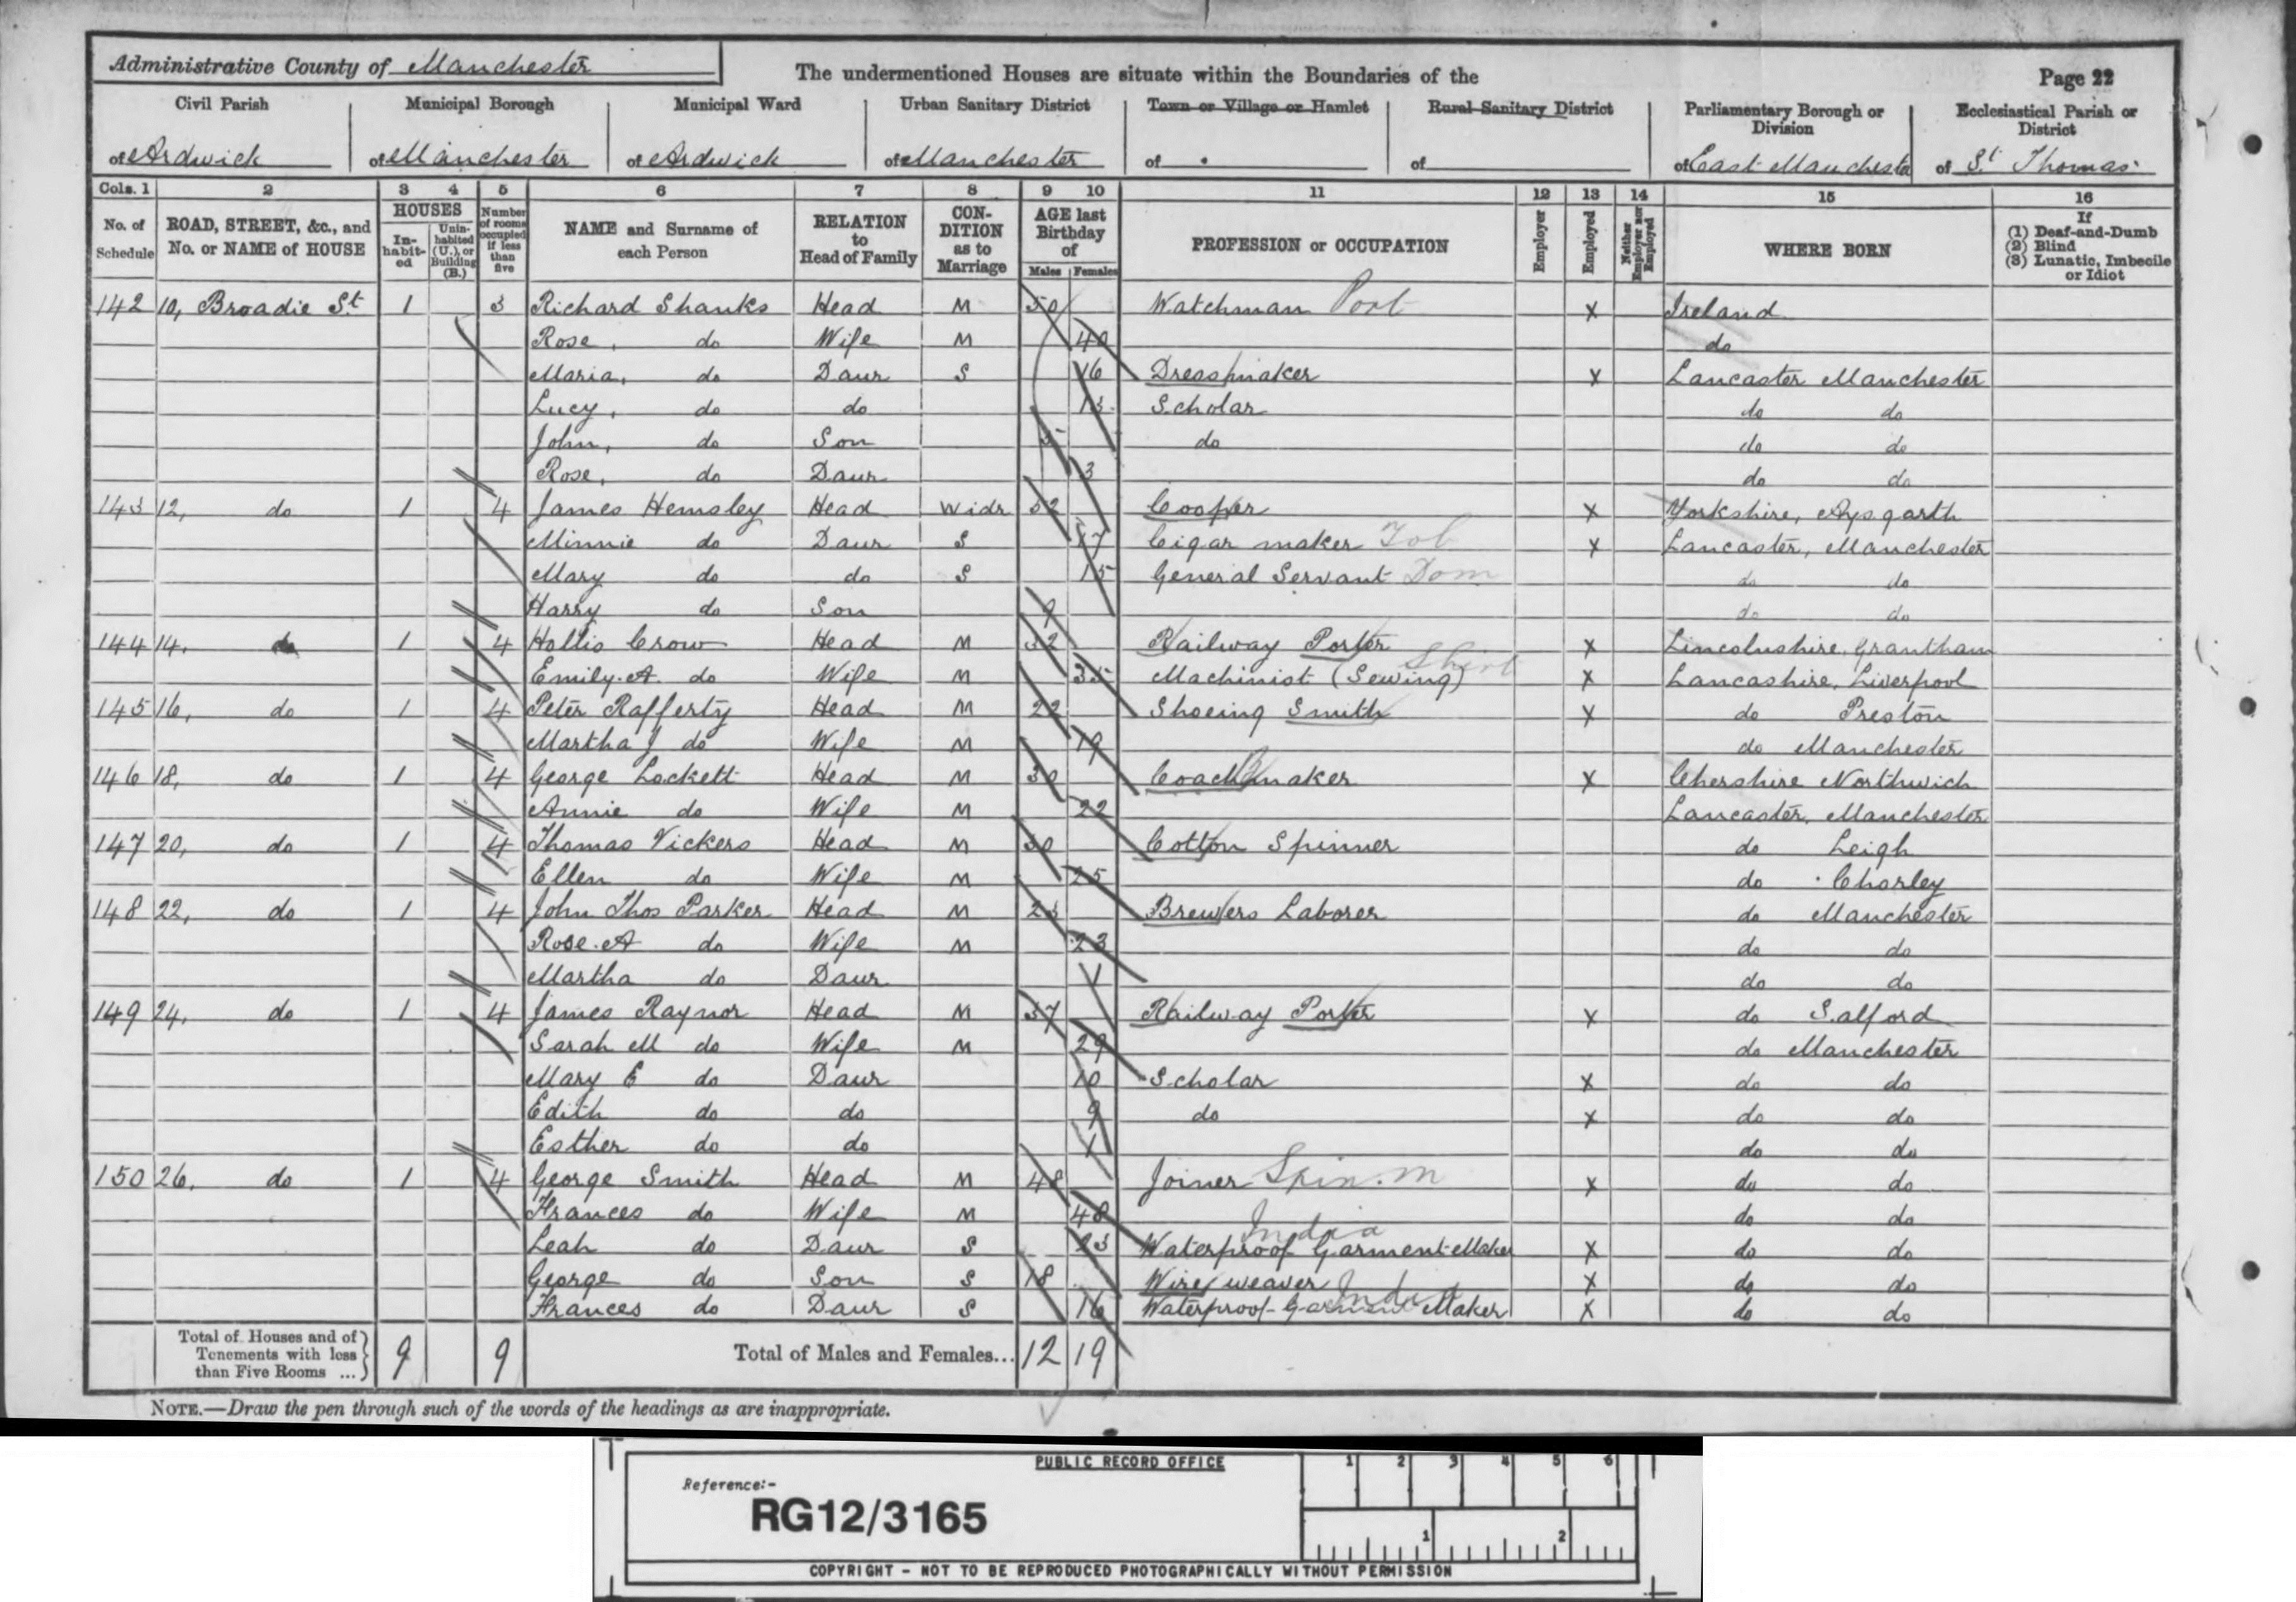 Administrative County of Manchester
The undermentioned Houses are situate within the Boundaries of the
Page 22
Civil Parish Municipal Borough Municipal Ward Urban Sanitary District Town or Village or Hamlet Rural Sanitary District Parliamentary Borough or Division Ecclesiastical Parish or District
of Ardwick of Manchester of Ardwick of Manchester of of of East Manchester of St Thomas
Cols. 1 2 3 4 5 6 7 8 9 10 11 12 13 14 15 16
No. of Schedule ROAD, STREET, &c., and No. or NAME of HOUSE HOUSES Inhabited Uninhabited (U.), or Building (B.) Number of rooms occupied if less than five NAME and Surname of each Person RELATION to Head of Family CONDITION as to Marriage AGE last Birthday of Males Females PROFESSION or OCCUPATION Employer Employed Neither Employer nor Employed WHERE BORN If (1) Deaf-and-Dumb (2) Blind (3) Lunatic, Imbecile or Idiot
142 10, Broadie St 1 3 Richard Shanks Head M 50 Watchman Port X Ireland
Rose, do Wife M 40 do
Maria, do Daur S 16 Dressmaker X Lancaster Manchester
Lucy, do do 13 Scholar do do
John, do Son 5 do do do
Rose, do Daur 3 do do
143 12, do 1 4 James Hemsley Head Widr 52 Cooper X Yorkshire, Aysgarth
Minnie do Daur S 17 Cigar maker Tob X Lancaster, Manchester
Mary do do S 15 General Servant Dom do do
Harry do Son 9 do do
144 14. do 1 4 Hollis Crow Head M 32 Railway Porter X Lincolnshire, Grantham
Emily. A. do Wife M 35 Machinist (Sewing) Shirt X Lancashire, Liverpool
145 16, do 1 4 Peter Rafferty Head M 22 Shoeing Smith X do Preston
Martha J do Wife M 19 do Manchester
146 18, do 1 4 George Lockett Head M 30 Coachmaker X Chershire Northwich
Annie do Wife M 22 Lancaster, Manchester
147 20, do 1 4 Thomas Vickers Head M 30 Cotton Spinner do Leigh
Ellen do Wife M 25 do Chorley
148 22, do 1 4 John Thos Parker Head M 23 Brewers Laborer do Manchester
Rose. A do Wife M 23 do do
Martha do Daur 1 do do
149 24, do 1 4 James Raynor Head M 37 Railway Porter X do Salford
Sarah M do Wife M 29 do Manchester
Mary E do Daur 10 Scholar X do do
Edith do do 9 do X do do
Esther do do 1 do do
150 26, do 1 4 George Smith Head M 48 Joiner Spin. M X do do
Frances do Wife M 48 do do
Leah do Daur S 23 Waterproof Garment Maker India X do do
George do Son S 18 Wire weaver X do do
Frances do Daur S 16 Waterproof Garment Maker India X do do
Total of Houses and of Tenements with less than Five Rooms ... 9 9 Total of Males and Females... 12 19
NOTE.—Draw the pen through such of the words of the headings as are inappropriate.
PUBLIC RECORD OFFICE
1 2 3 4 5 6
Reference:-
RG12/3165
1 2
COPYRIGHT - NOT TO BE REPRODUCED PHOTOGRAPHICALLY WITHOUT PERMISSION